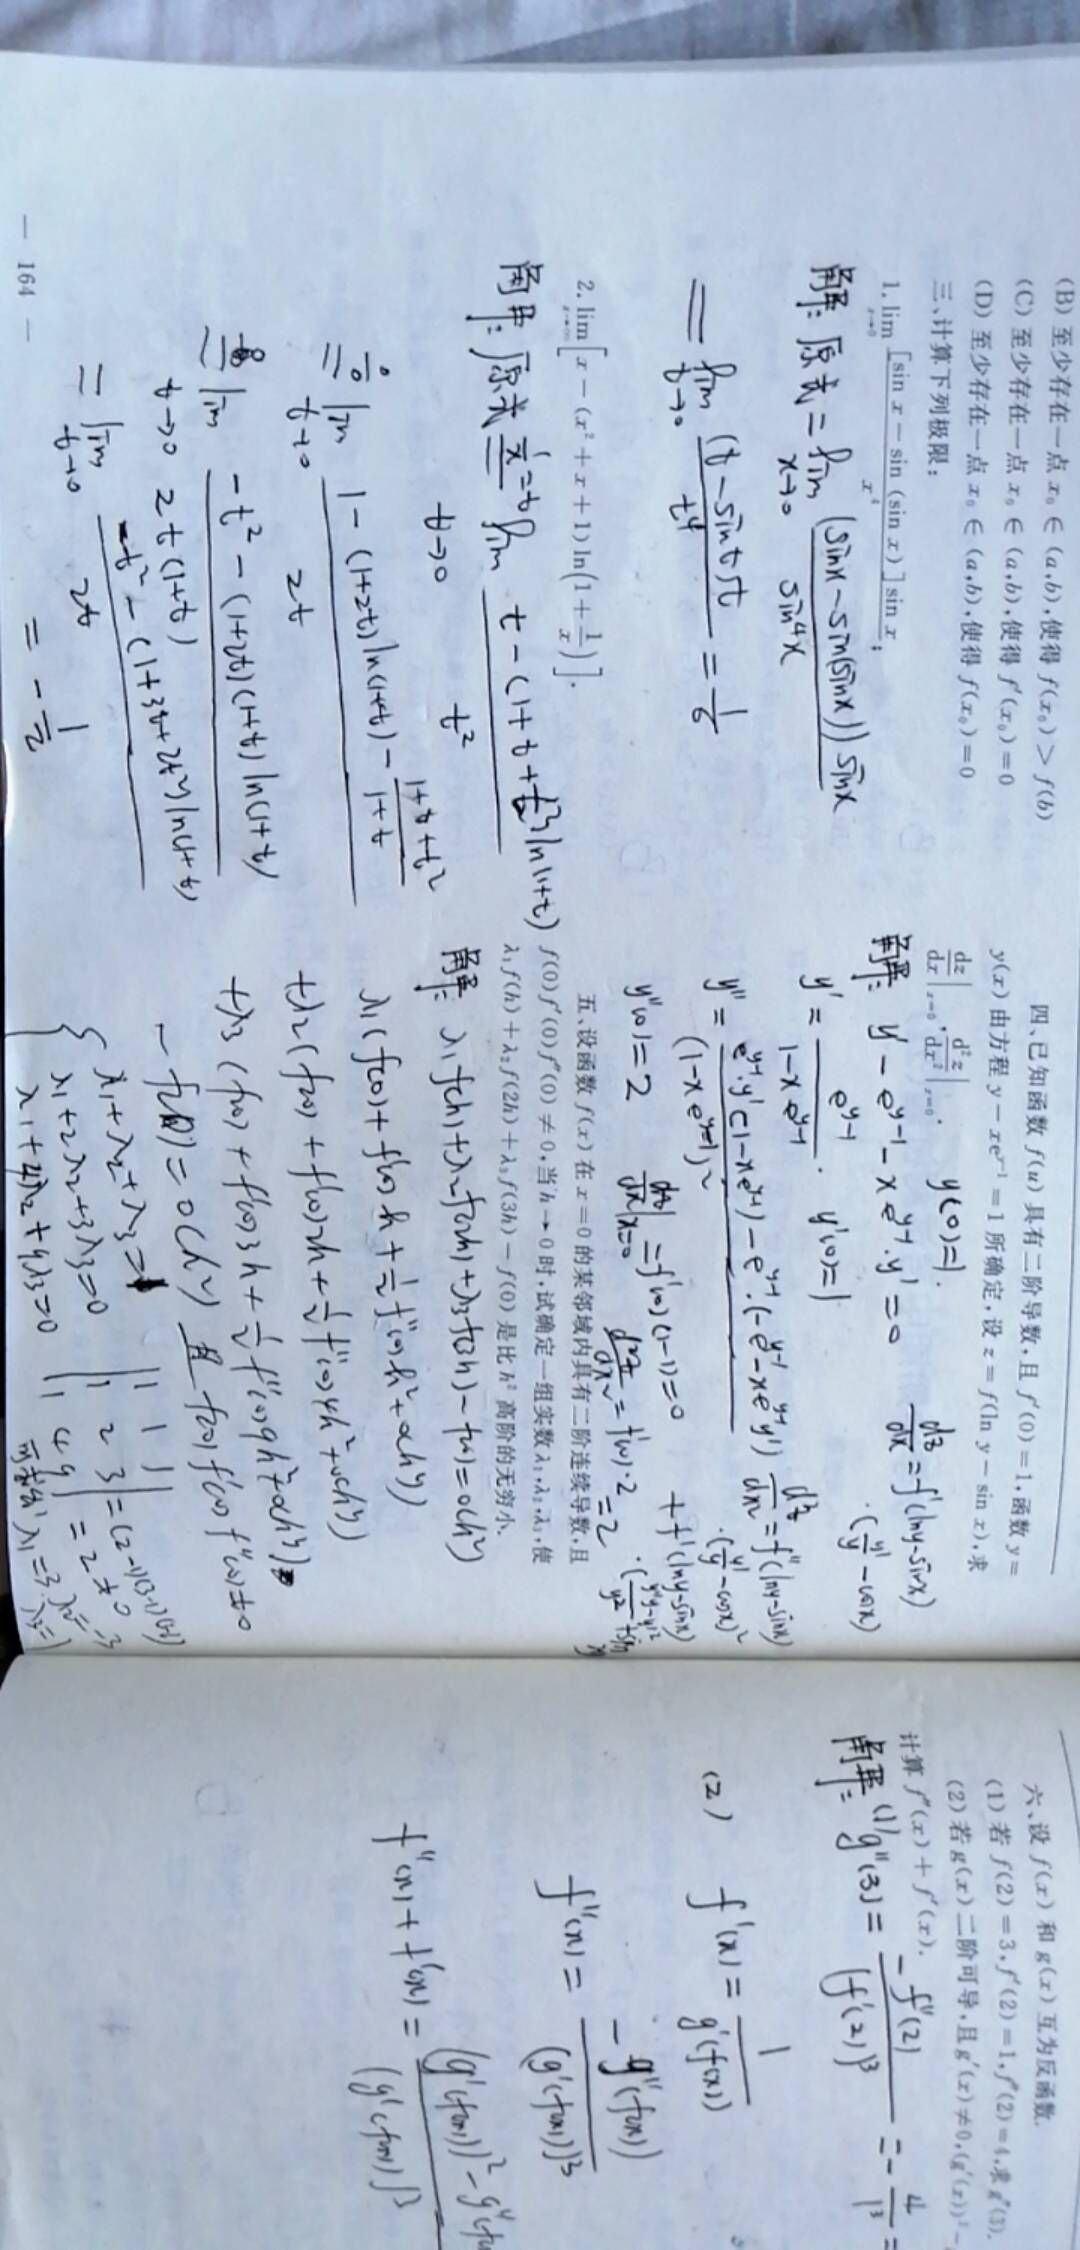 (B) 至少存在一点 x₀ ∈ (a,b),使得 f(x₀) > f(b)
(C) 至少存在一点 x₀ ∈ (a,b),使得 f′(x₀) = 0
(D) 至少存在一点 x₀ ∈ (a,b),使得 f(x₀) = 0
三、计算下列极限:
1. lim_{x→0} [sin x − sin (sin x)] sin x / x⁴;
解: 原式 = lim_{x→0} (sinx − sin(sinx)) sinx / sin⁴x
= lim_{t→0} (t − sint)t / t⁴ = 1/6
2. lim_{x→∞} [x − (x² + x + 1) ln(1 + 1/x)].
解: 原式 1/x = t lim_{t→0} t − (1 + t + t²) ln(1+t) / t²
0/0 = lim_{t→0} 1 − (1+2t) ln(1+t) − (1+t+t²)/(1+t) / 2t
= lim_{t→0} −t² − (1+2t)(1+t) ln(1+t) / 2t(1+t)
= lim_{t→0} −t² − (1+3t+2t²) ln(1+t) / 2t
= −1/2
— 164 —
四、已知函数 f(u) 具有二阶导数,且 f′(0) = 1,函数 y =
y(x) 由方程 y − xe^{y−1} = 1 所确定,设 z = f(ln y − sin x),求
dz/dx|_{x=0}, d²z/dx²|_{x=0}.
y(0)=1.
解: y′ − e^{y−1} − xe^{y−1}·y′ = 0
dz/dx = f′(lny−sinx)
·(y′/y − cosx)
y′ = e^{y−1} / (1−xe^{y−1}). y′(0)=1
y″ = e^{y−1}·y′(1−xe^{y−1}) − e^{y−1}·(−e^{y−1}−xe^{y−1}y′) / (1−xe^{y−1})²
d²z/dx² = f″(lny−sinx)
·(y′/y − cosx)²
+ f′(lny−sinx)
·(y″y−y′²/y² + sinx)
y″(0)=2 dz/dx|_{x=0} = f′(0)(1−1)=0
d²z/dx² = f′(0)·2 = 2
五、设函数 f(x) 在 x = 0 的某邻域内具有二阶连续导数,且
f(0) f′(0) f″(0) ≠ 0,当 h → 0 时,试确定一组实数 λ₁,λ₂,λ₃,使
λ₁ f(h) + λ₂ f(2h) + λ₃ f(3h) − f(0) 是比 h² 高阶的无穷小.
解: λ₁f(h) + λ₂f(2h) + λ₃f(3h) − f(0) = o(h²)
λ₁(f(0) + f′(0)h + 1/2 f″(0)h² + o(h²))
+λ₂(f(0) + f′(0)2h + 1/2 f″(0)4h² + o(h²))
+λ₃(f(0) + f′(0)3h + 1/2 f″(0)9h² + o(h²))
− f(0) = o(h²) 且 f(0)f′(0)f″(0) ≠ 0
λ₁+λ₂+λ₃=1
λ₁+2λ₂+3λ₃=0
λ₁+4λ₂+9λ₃=0
|1 1 1
1 2 3
1 4 9| = (2−1)(3−1)(3−2)
= 2 ≠ 0
λ₁=3. λ₂=−3 λ₃=1
六、设 f(x) 和 g(x) 互为反函数.
(1) 若 f(2) = 3,f′(2) = 1,f″(2) = 4,求 g″(3).
(2) 若 g(x) 二阶可导,且 g′(x) ≠ 0,(g′(x))² −
计算 f″(x) + f′(x).
解: (1) g″(3) = −f″(2) / (f′(2))³ = −4/1³ =
(2) f′(x) = 1 / g′(f(x))
f″(x) = −g″(f(x)) / (g′(f(x)))³
f″(x) + f′(x) = (g′(f(x)))² − g″(f(x) / (g′(f(x)))³